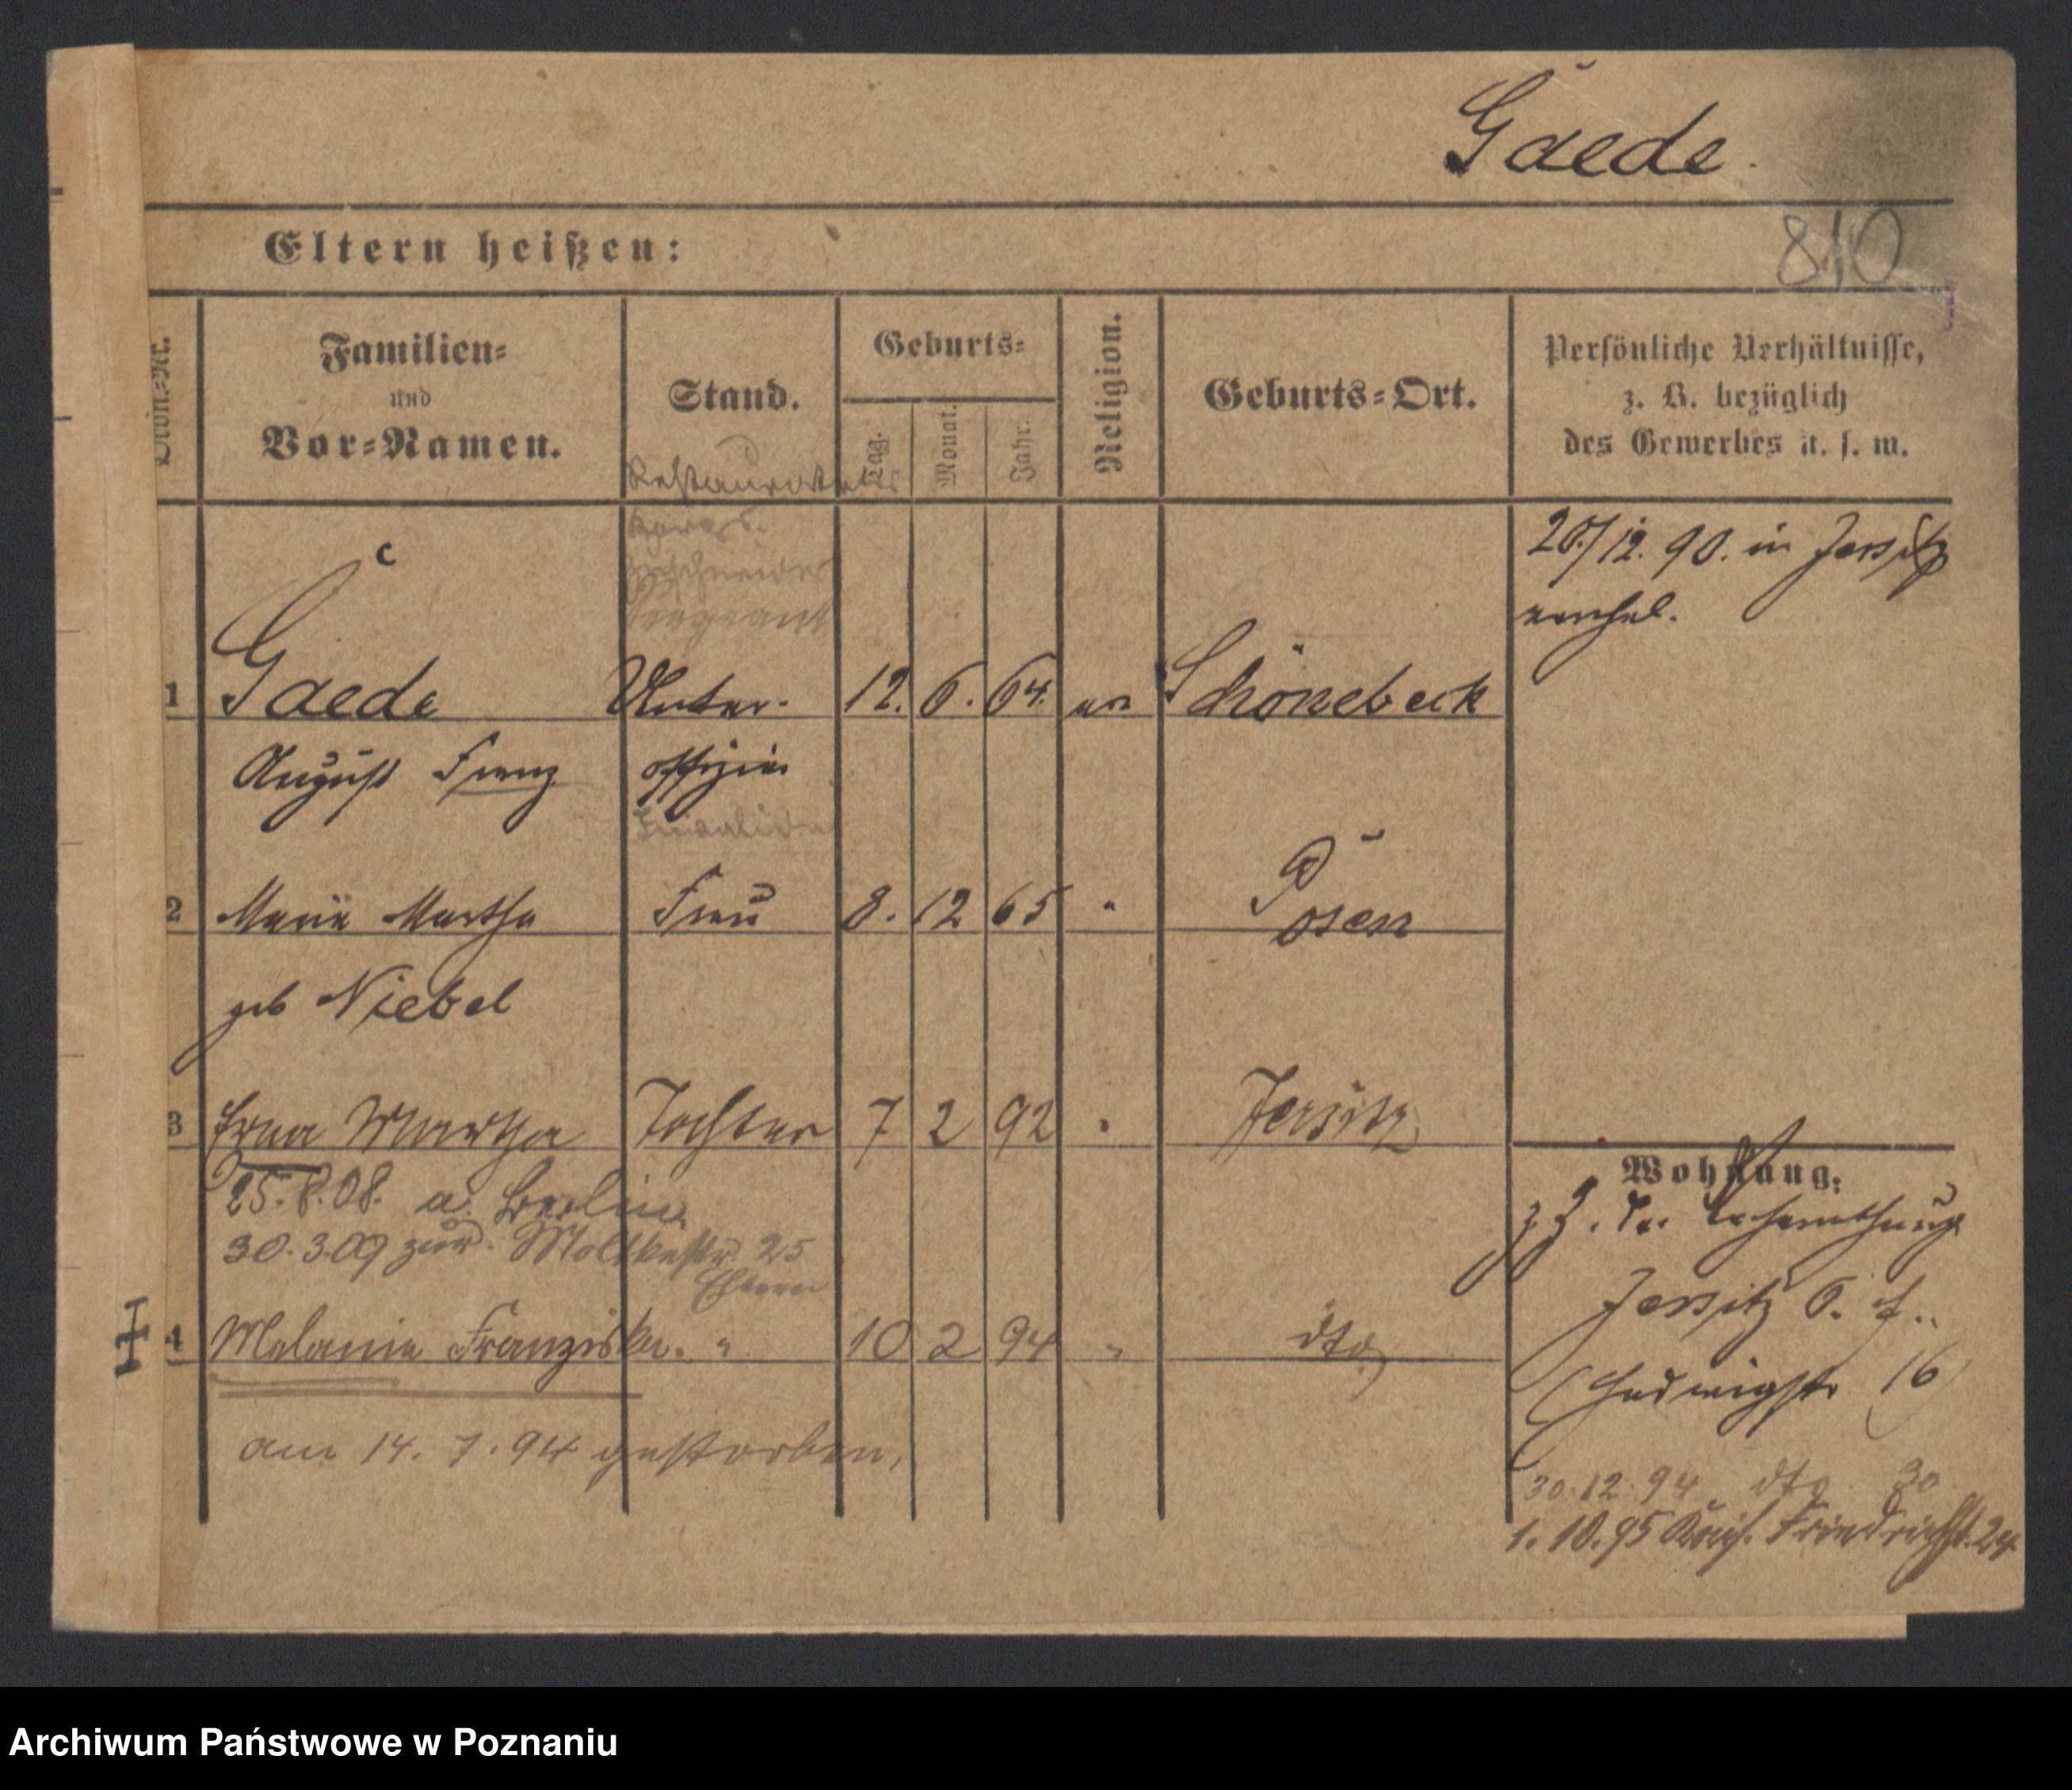 Gaede.
Eltern heißen:
810
Ordn.=Nr.
Familien=
und
Vor=Namen.
Stand.
Geburts=
Tag.
Monat.
Jahr.
Religion.
Geburts=Ort.
Persönliche Verhältnisse,
z. B. bezüglich
des Gewerbes u. s. w.
Restaurateur
Sergeant
20/12. 90. in Jersitz
verehel.
1 Gaede Unter- 12. 6. 64. ev Schönebeck
August Franz offizier
Invalide
2 Marie Martha Frau 8. 12 65 " Posen
geb Niebel
3 Erna Martha Tochter 7 2 92 " Jersitz
25.8.08. a. Berlin
30.3.09 zur. Moltkestr. 25
Eltern
4 Melanie Franziska. " 10 2 94 " dto
am 14. 7. 94 gestorben,
Wohnung:
z. Z.
Jersitz
(Hedwigstr 16)
30.12.94 dto 30
1.10.95 Kais. Friedrichst. 24.
Archiwum Państwowe w Poznaniu